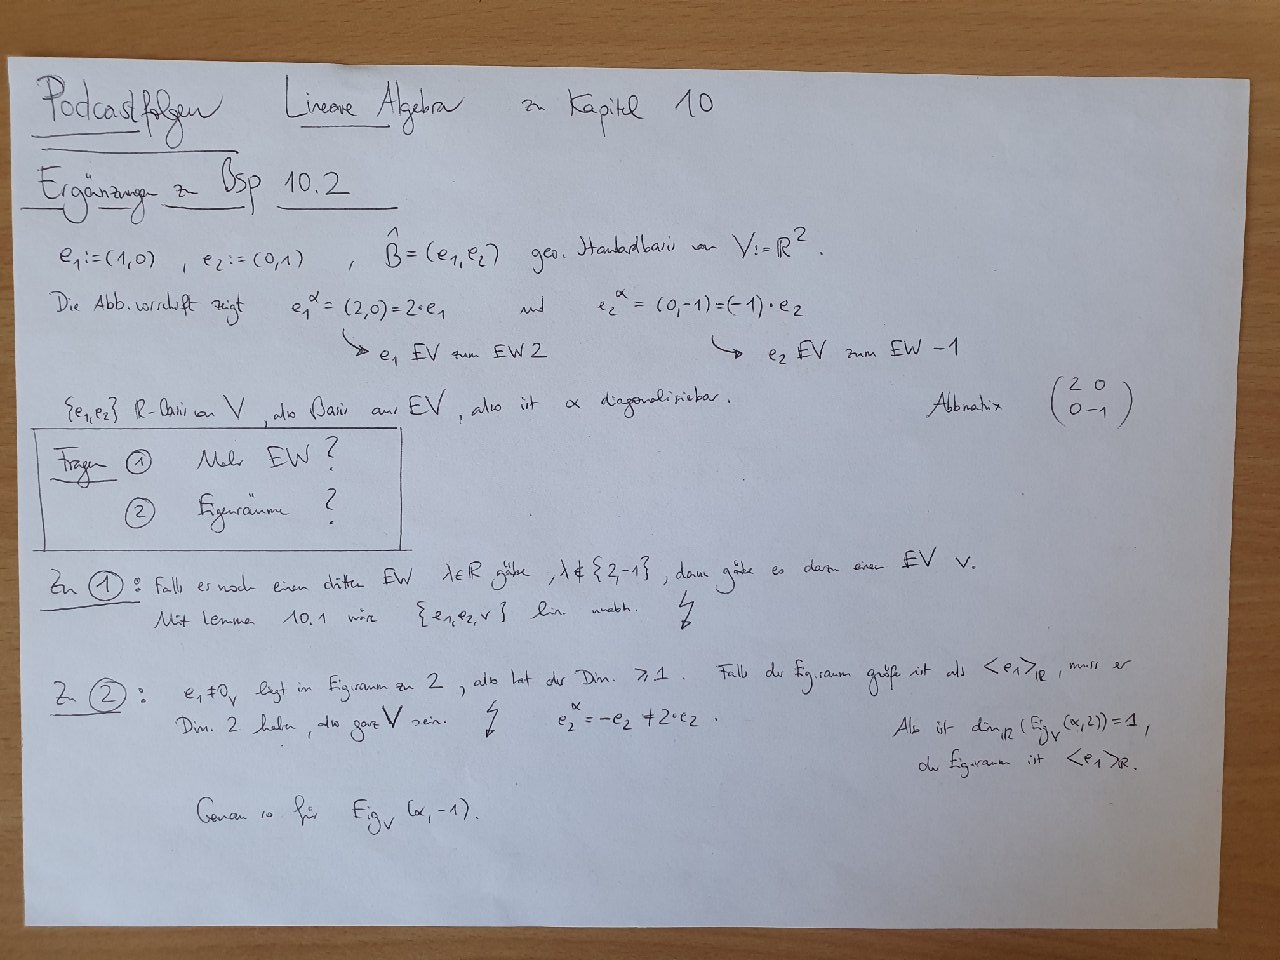 Podcastfolgen Lineare Algebra zu Kapitel 10
Ergänzungen zu Bsp 10.2
e₁:=(1,0) , e₂:=(0,1) , B̂=(e₁,e₂) geo. Standardbasis von V:=ℝ².
Die Abb.vorschrift zeigt e₁^α = (2,0)=2·e₁ und e₂^α = (0,-1)=(-1)·e₂
↘ e₁ EV zum EW 2 ↘ e₂ EV zum EW -1
{e₁,e₂} ℝ-Basis von V, also Basis aus EV, also ist α diagonalisierbar. Abbmatrix (2 0
0 -1)
Fragen ① Mehr EW ?
② Eigenräume ?
Zu ①: Falls es noch einen dritten EW λ∈ℝ gäbe, λ∉{2,-1}, dann gäbe es dazu einen EV v.
Mit Lemma 10.1 wäre {e₁,e₂,v} lin. unabh. ↯
Zu ②: e₁≠0_V liegt im Eig.raum zu 2, also hat der Dim. ≥1. Falls der Eig.raum größer ist als <e₁>_ℝ, muss er
Dim. 2 haben, also ganz V sein. ↯ e₂^α = -e₂ ≠ 2·e₂.
Also ist dim_ℝ(Eig_V(α,2))=1,
der Eig.raum ist <e₁>_ℝ.
Genau so für Eig_V(α,-1).